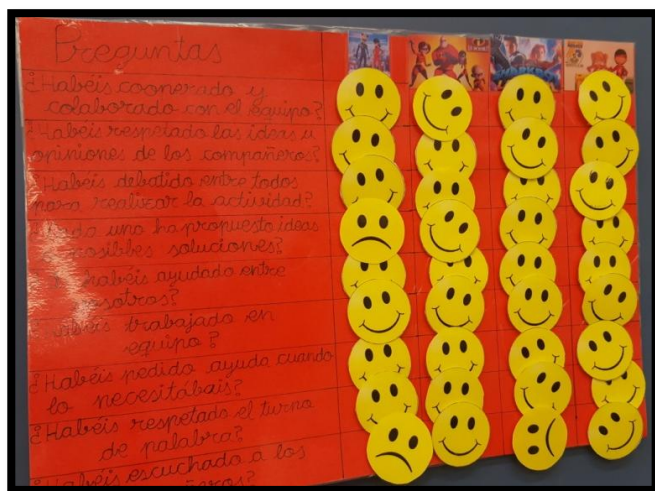 Preguntas
¿Habéis cooperado y
colaborado con el equipo?
¿Habéis respetado las ideas u
opiniones de los compañeros?
¿Habéis debatido entre todos
para realizar la actividad?
¿Cada uno ha propuesto ideas
posibles soluciones?
habéis ayudado entre
vosotros?
¿Habéis trabajado en
equipo?
¿Habéis pedido ayuda cuando
lo necesitábais?
¿Habéis respetado el turno
de palabra?
¿Habéis escuchado a los